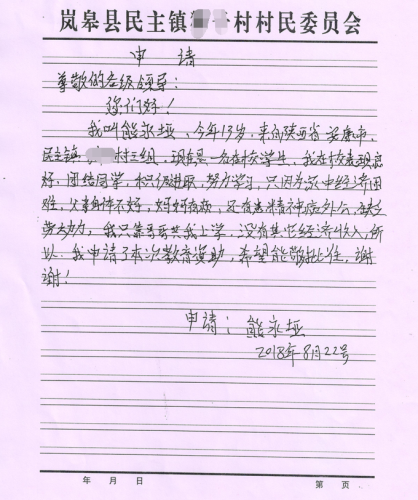 岚皋县民主镇 村村民委员会
申 请
尊敬的各级领导:
您们好!
我叫熊永垭,今年13岁,来自陕西省安康市,
民主镇 村三组,现在是一名在校学生,我在校表现良
好,团结同学,积极进取,努力学习,只因为家中经济困
难,父亲身体不好,妈妈有病,还有患精神病外公,缺乏
劳动力,我只靠哥哥供我上学,没有其它经济收入,所
以,我申请了本次教育资助,希望能够批准,谢
谢!
申请:熊永垭
2018年8月22号
年 月 日 第 页